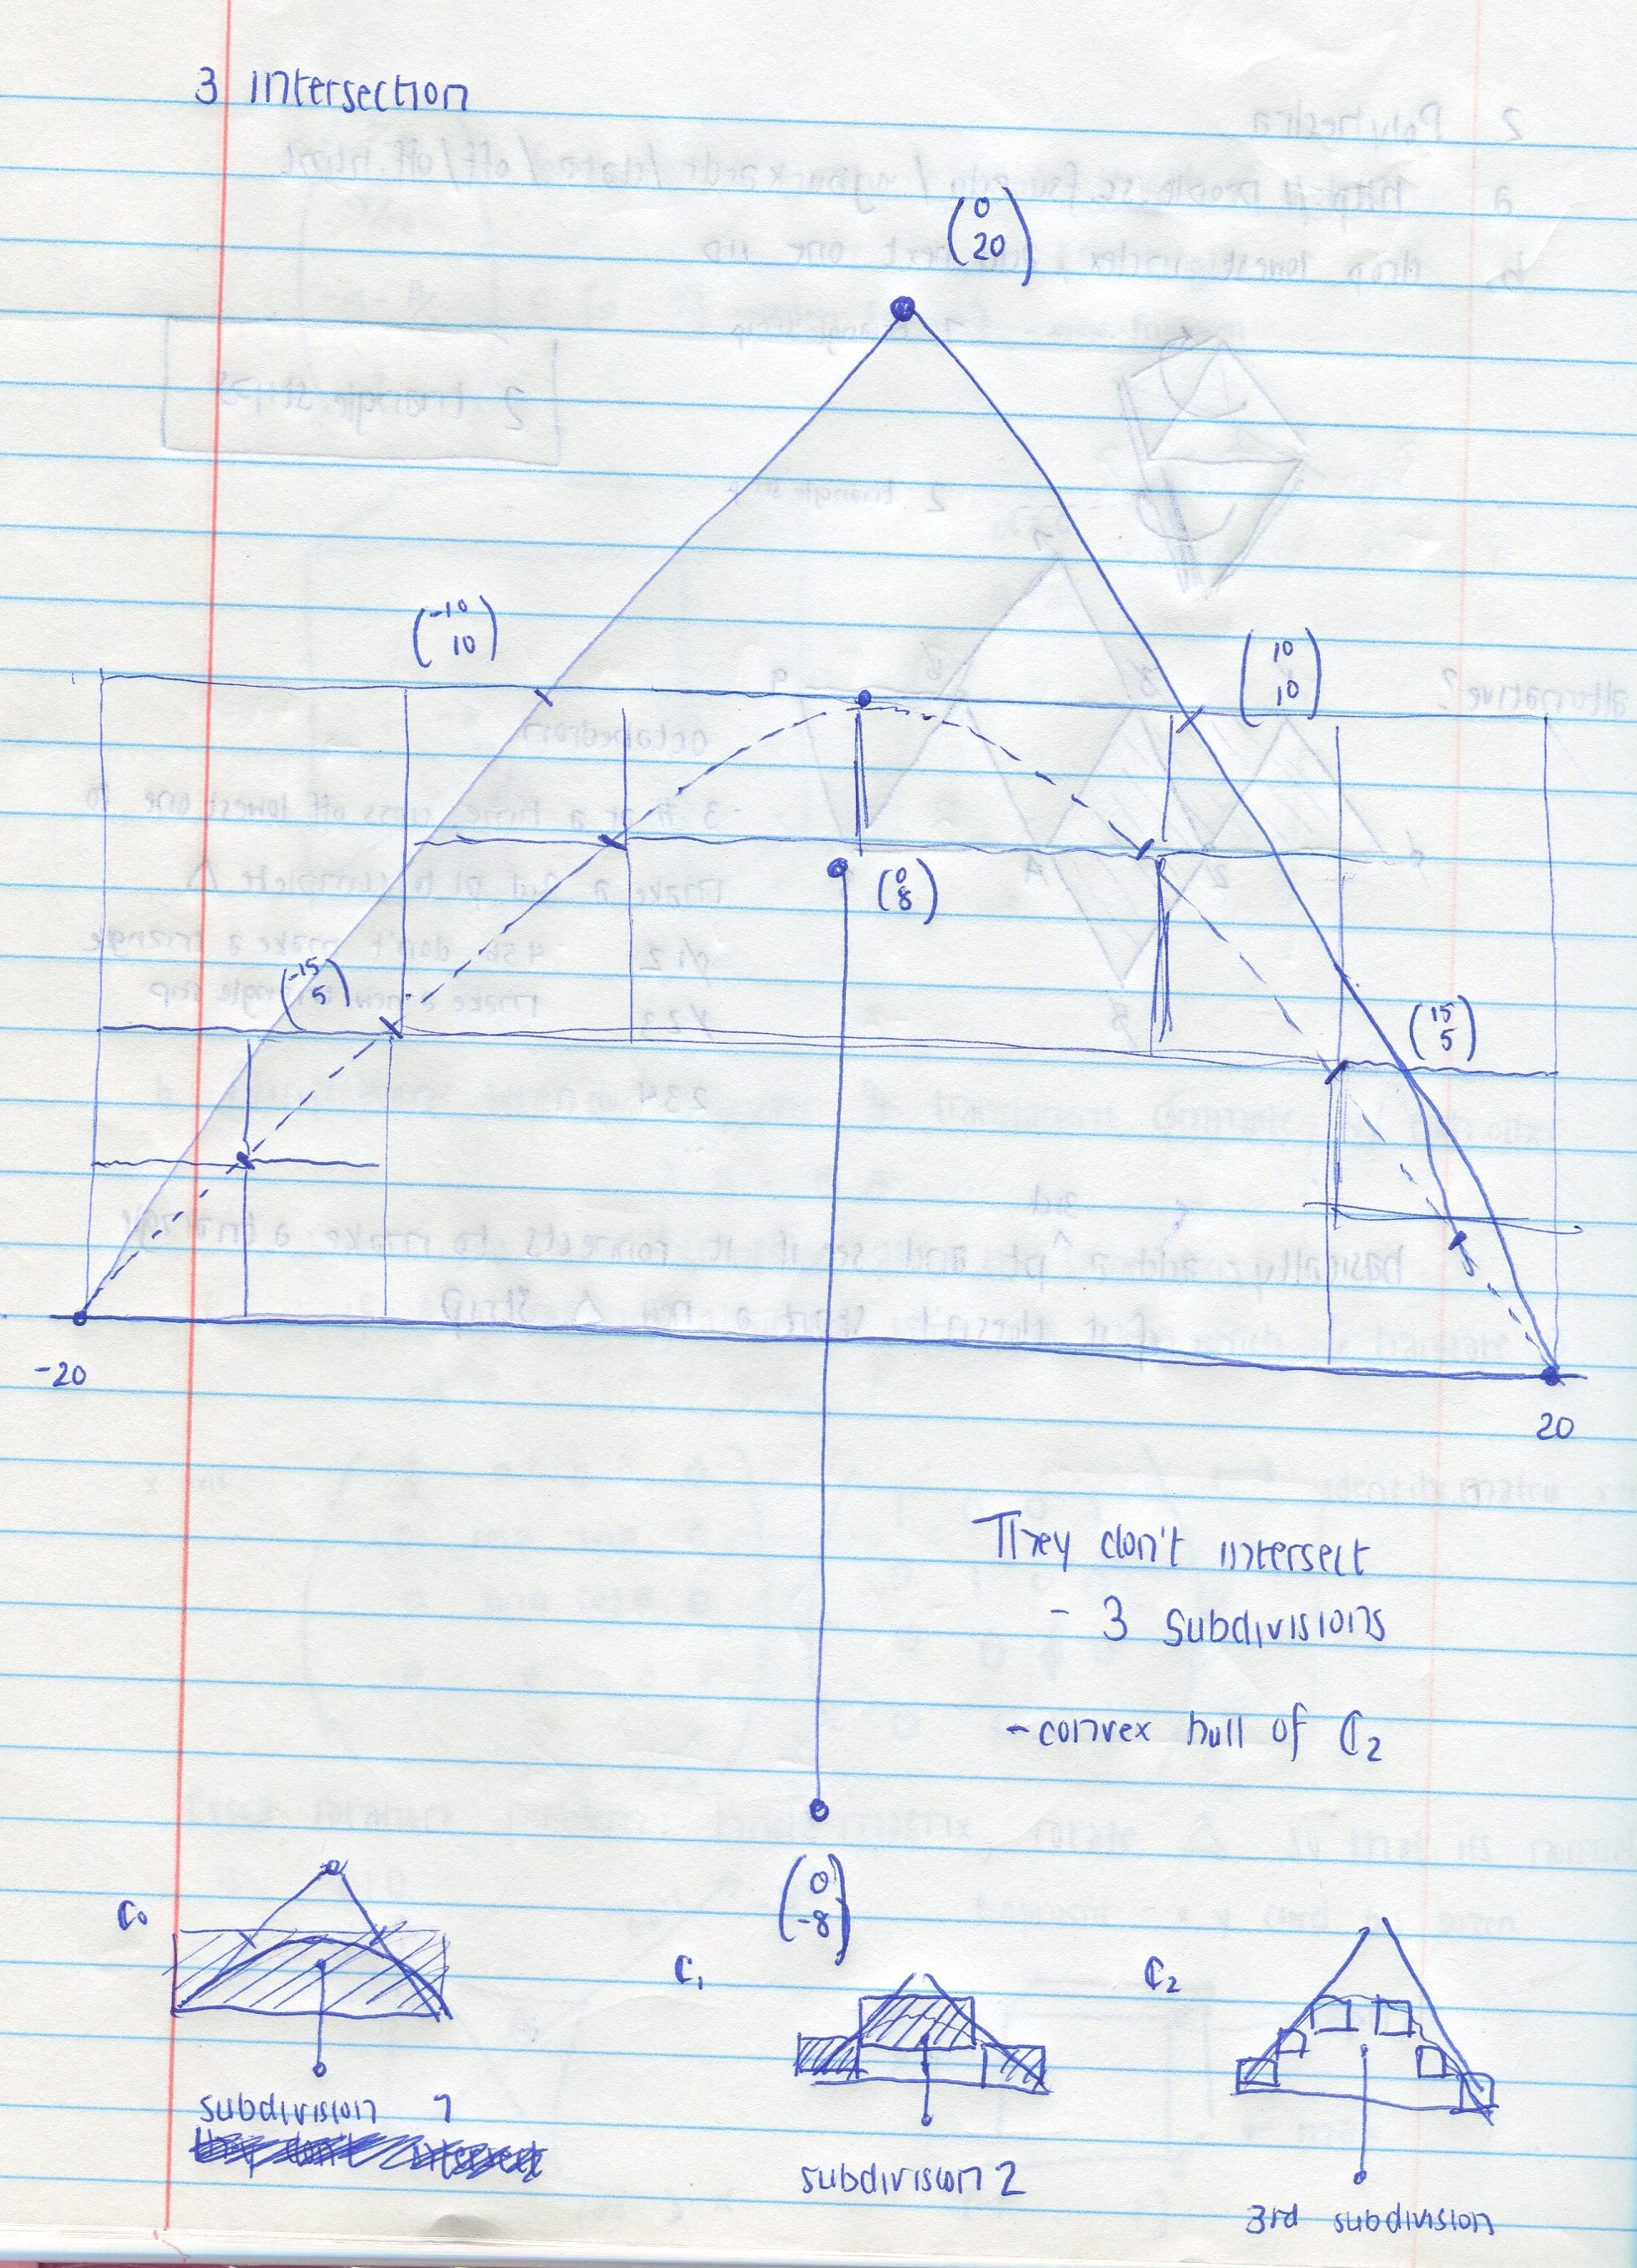 3 intersection
(0
20)
(-10
10)
(10
10)
(0
8)
(-15
5)
(15
5)
-20
20
They don't intersect
- 3 subdivisions
- convex hull of C2
(0
-8)
C0
C1
C2
subdivision 1
subdivision 2
3rd subdivision